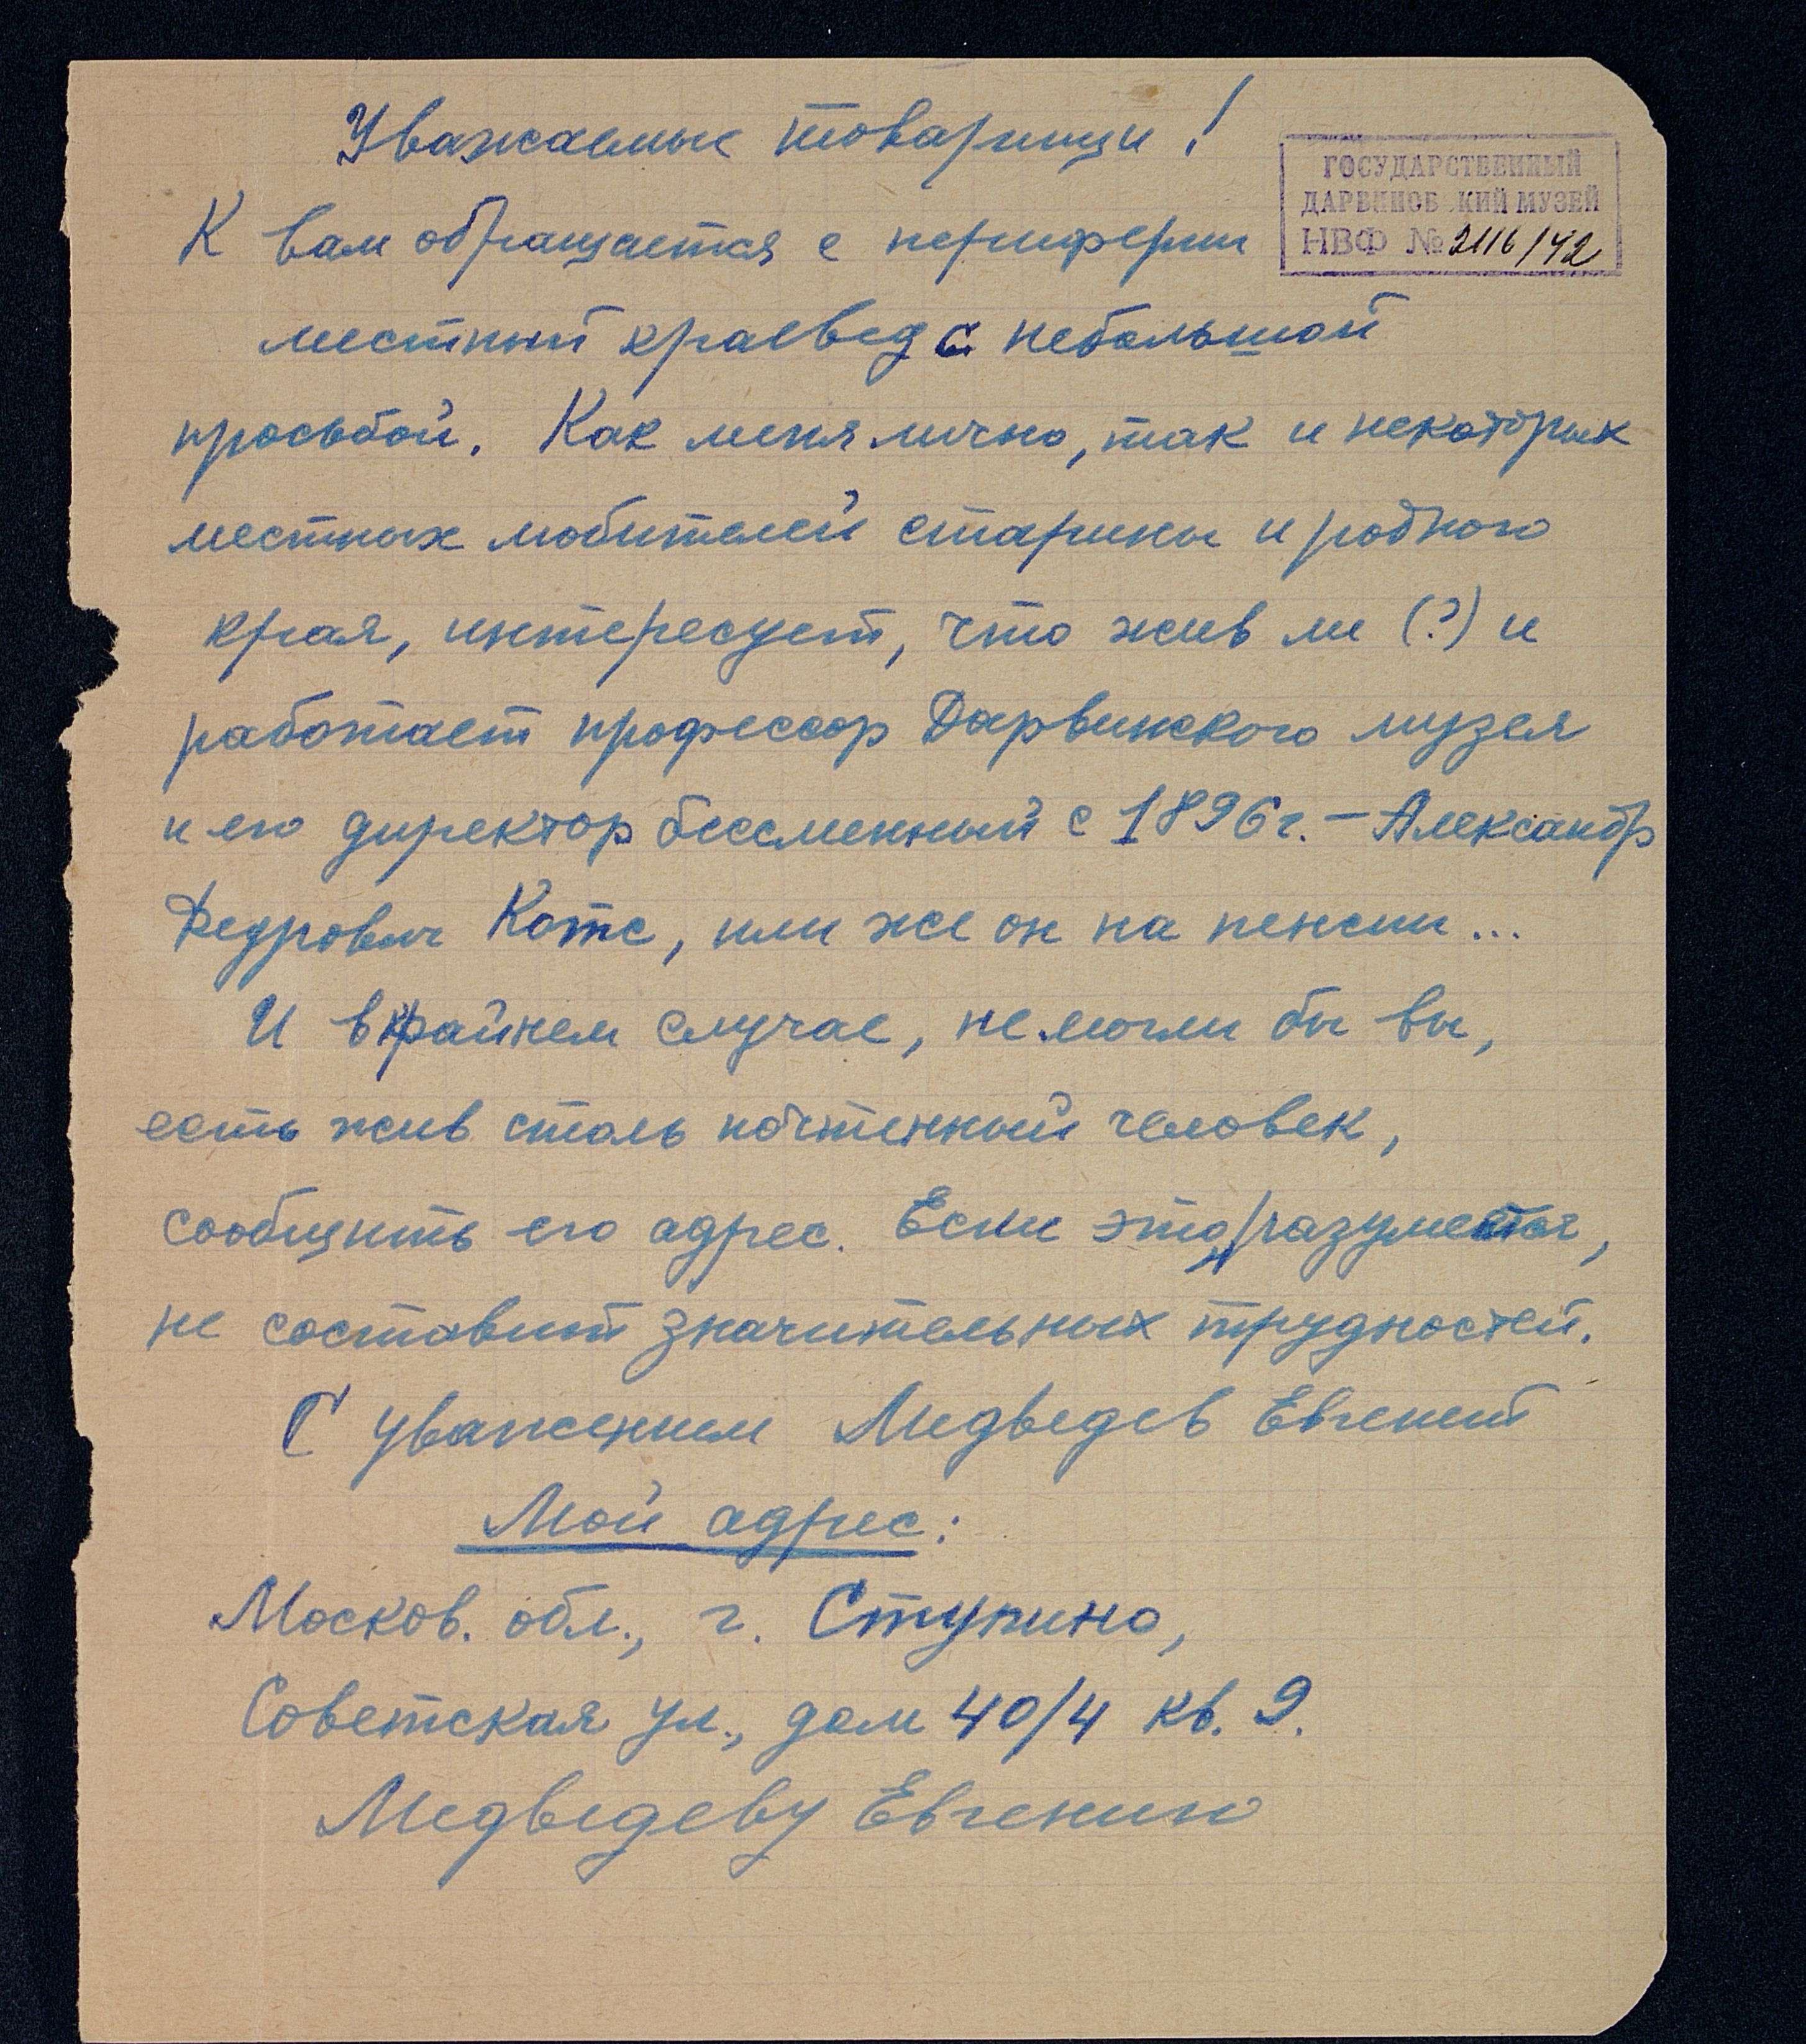 Уважаемые товарищи!
ГОСУДАРСТВЕННЫЙ
ДАРВИНОВ КИЙ МУЗЕЙ
НВФ № 2116/42
К вам обращается с периферии
местный краевед с небольшой
просьбой. Как меня лично, так и некоторых
местных любителей старины и родного
края, интересует, что жив ли (?) и
работает профессор Дарвинского музея
и его директор бессменный с 1896 г. – Александр
Федрович Котс, или же он на пенсии...
И в крайнем случае, не могли бы вы,
есть жив столь почтенный человек,
сообщить его адрес. Если это, разумеется,
не составит значительных трудностей.
С уважением Медведев Евгений
Мой адрес:
Москов. обл., г. Ступино,
Советская ул., дом 40/4 кв. 9.
Медведеву Евгению